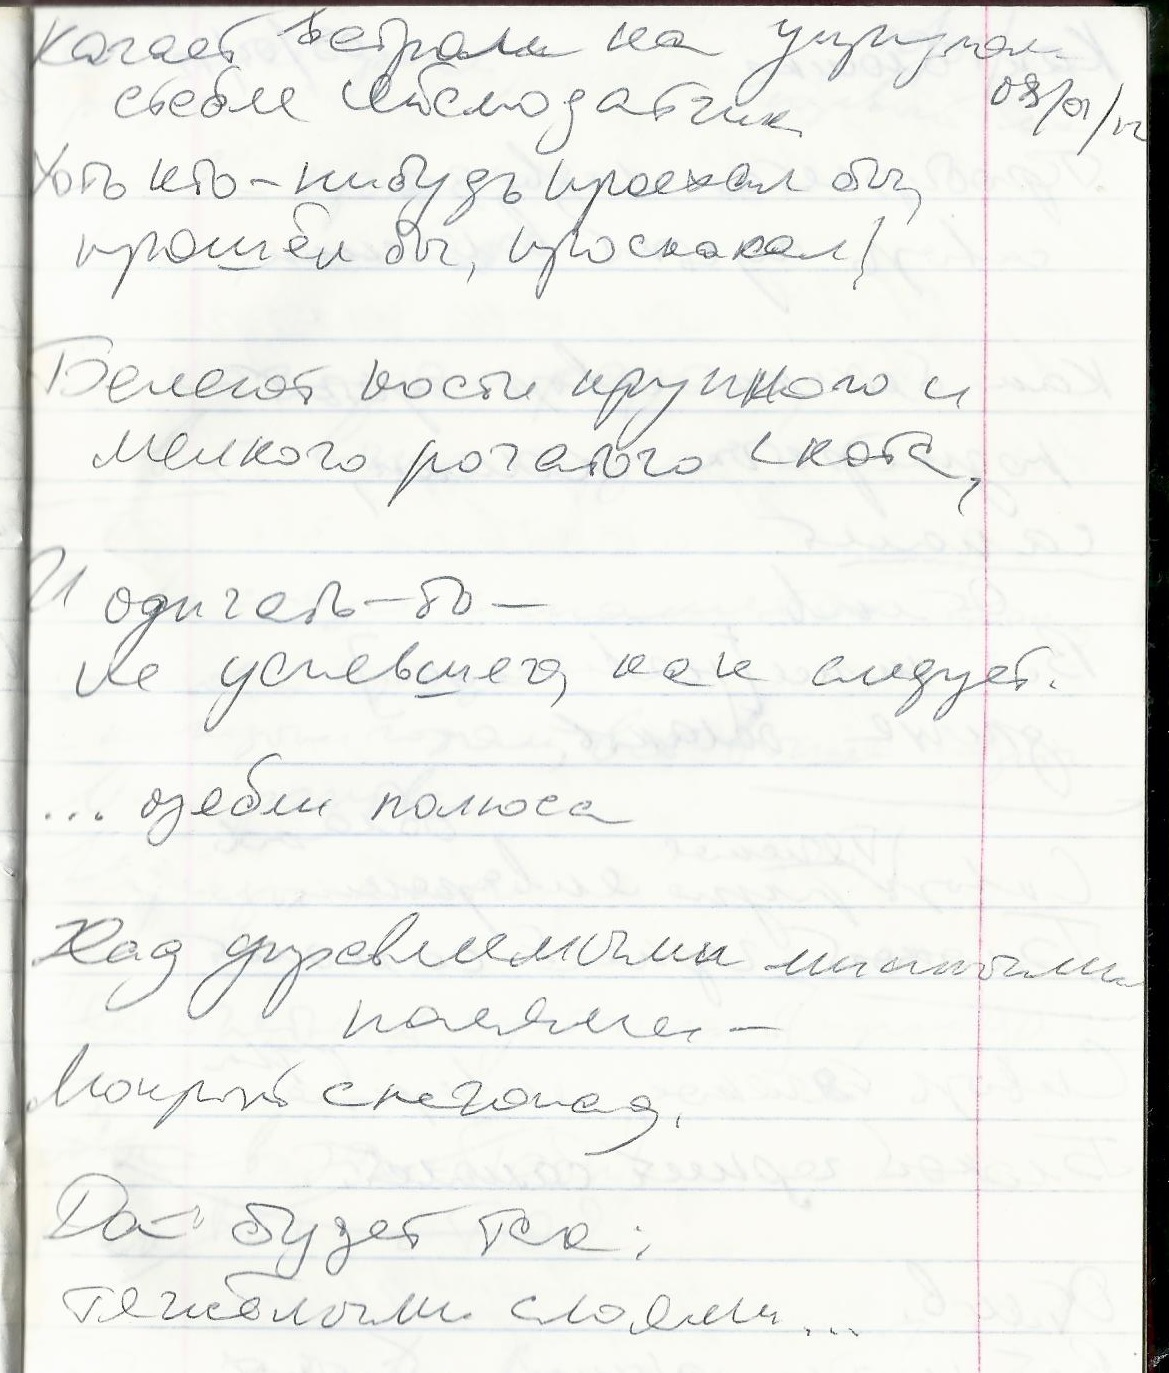 Качает ветром на упругом
стебле
08/01/12
Хоть кто-нибудь проехал бы,
прошёл бы, проскакал!
Белеют кости крупного и
мелкого рогатого скота,
И одичать-то —
не успевшего, как следует.
... озябли полюса
Над минными
полями —
Мокрый снегопад.
Да будет так:
тяжёлыми слоями...